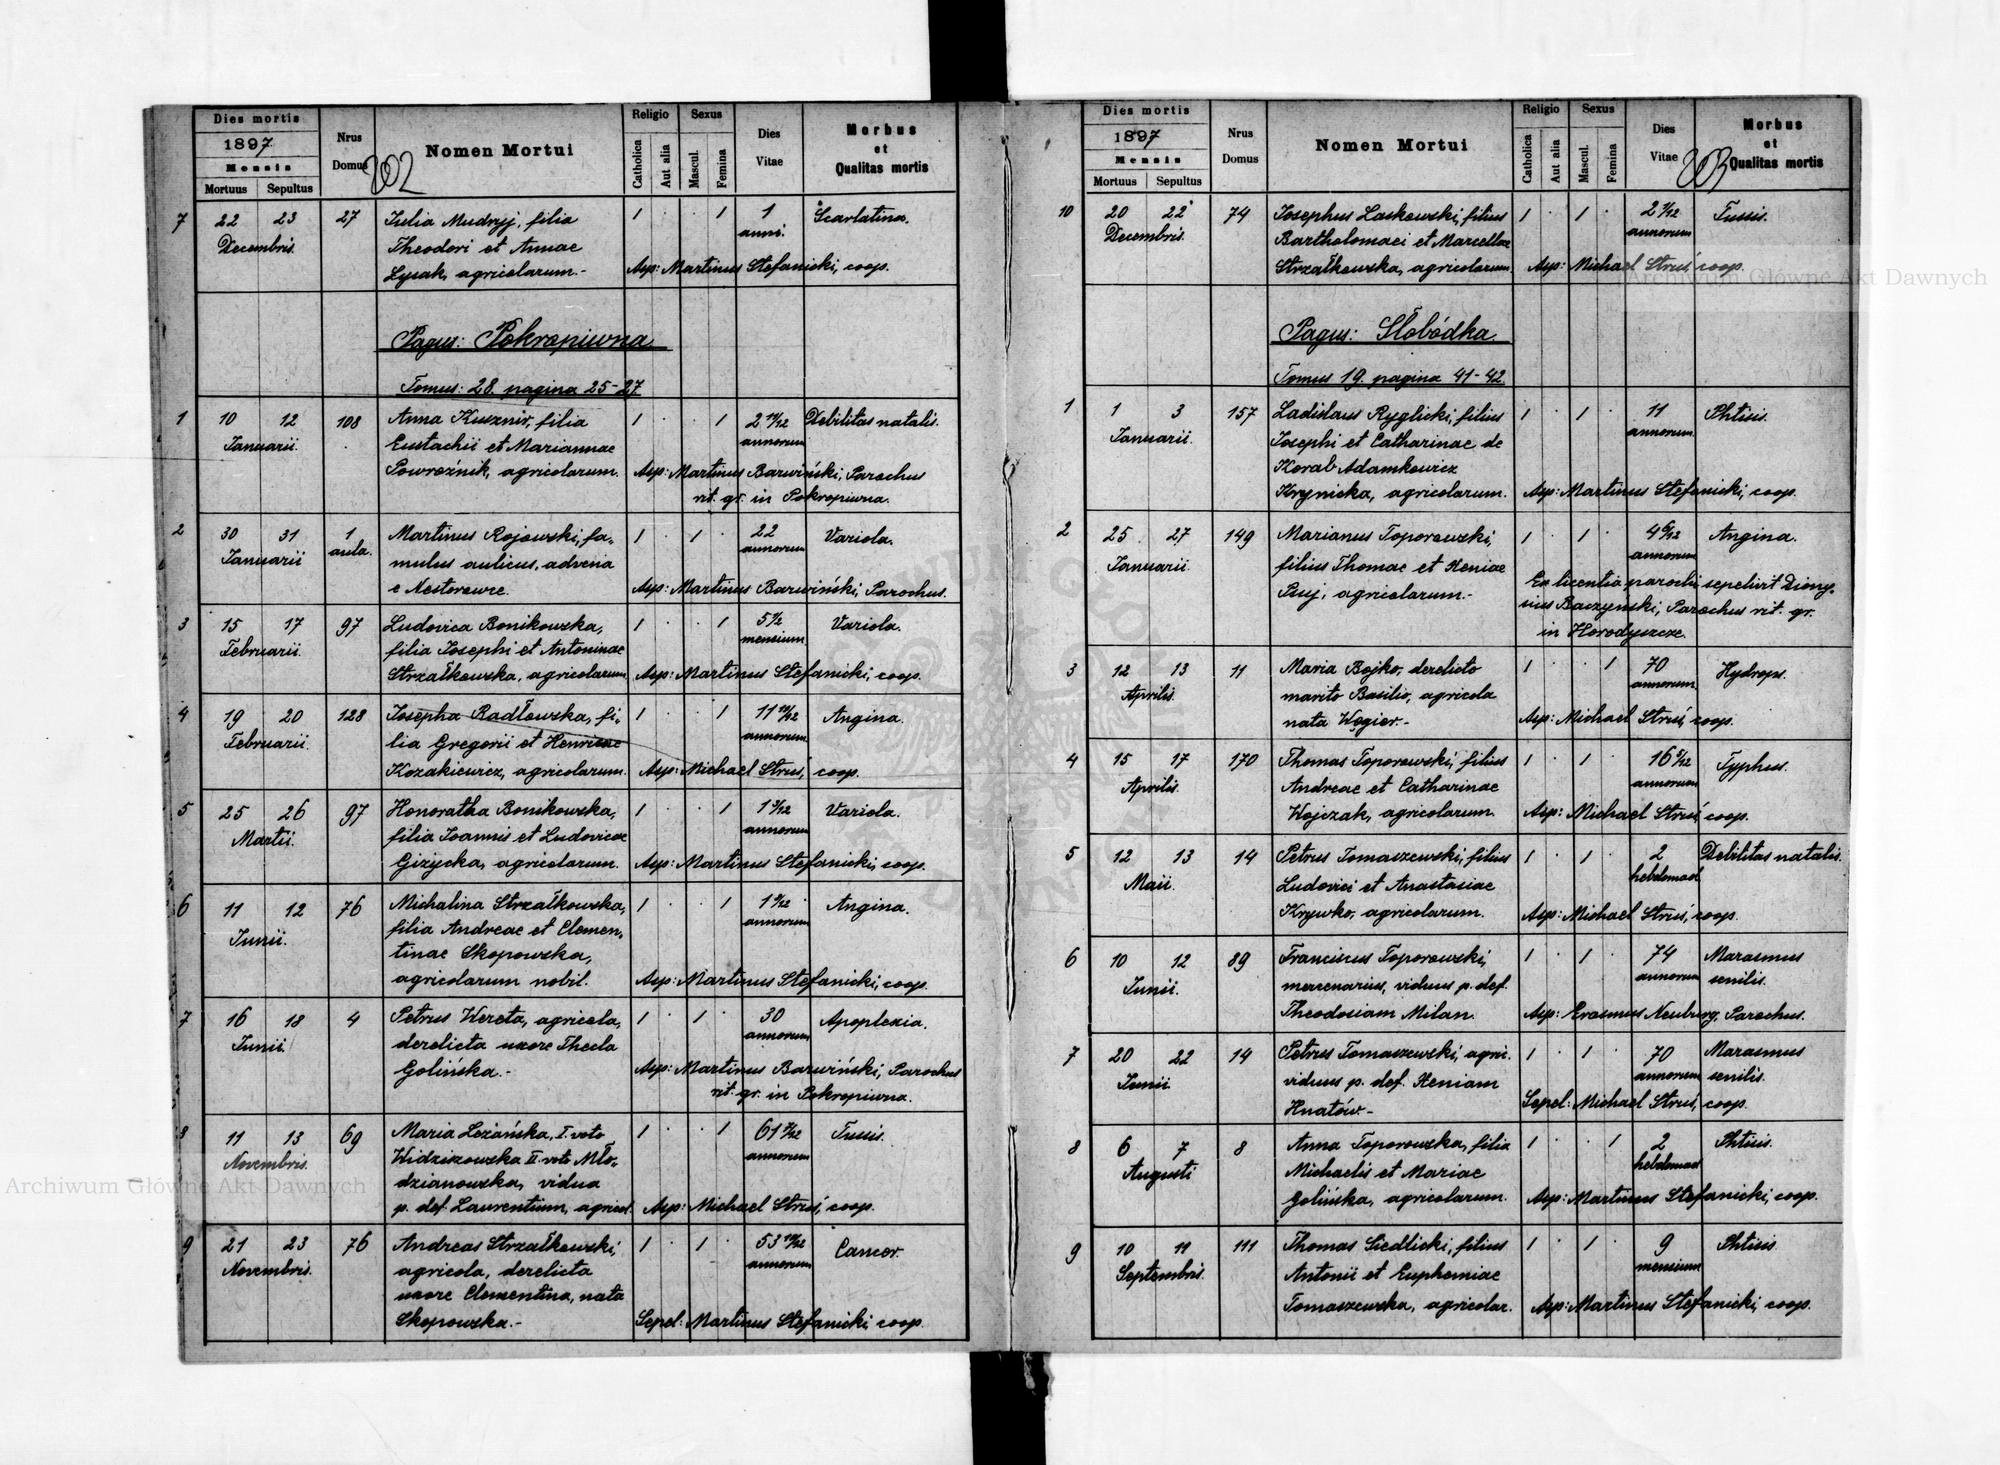 Dies mortis
1897
Mensis
Mortuus Sepultus
Nrus
Domus
202
Nomen Mortui
Religio
Catholica
Aut alia
Sexus
Mascul.
Femina
Dies
Vitae
Morbus
et
Qualitas mortis
7 22 23 27 Iulia Mudryj, filia 1 · · 1 1 Scarlatina.
Decembris. Theodori et Annae anni.
Lysak, agricolarum.- Asp: Martinus Stefanicki, coop.
Pagus: Pokropiwna
Tomus: 28. pagina 25-27
1 10 12 108 Anna Kusznir, filia 1 · · 1 2 11/12 Debilitas natalis.
Ianuarii. Eustachii et Mariannae annorum
Powroźnik, agricolarum. Asp: Martinus Barwiński, Parochus
rit. gr. in Pokropiwna.
2 30 31 1 Martinus Rojowski, fa- 1 · 1 · 22 Variola.
Ianuarii aula. mulus aulicus, advena annorum
e Nestorowce. Asp: Martinus Barwiński, Parochus.
3 15 17 97 Ludovica Bonikowska, 1 · · 1 5 1/2 Variola.
Februarii. filia Iosephi et Antoninae mensium
Strzałkowska, agricolarum Asp: Martinus Stefanicki, coop.
4 19 20 128 Iosepha Radłowska, fi- 1 · · 1 11 10/12 Angina.
Februarii. lia Gregorii et Henricae annorum
Kozakiewicz, agricolarum. Asp: Michael Struś, coop.
5 25 26 97 Honoratha Bonikowska, 1 · · 1 1 3/12 Variola.
Martii. filia Ioannis et Ludovicae annorum
Giżycka, agricolarum. Asp: Martinus Stefanicki, coop.
6 11 12 76 Michalina Strzałkowska, 1 · · 1 1 9/12 Angina.
Iunii. filia Andreae et Clemen- annorum
tinae Skopowska,
agricolarum nobil. Asp: Martinus Stefanicki, coop.
7 16 18 4 Petrus Wereta, agricola, 1 · 1 · 30 Apoplexia.
Iunii. derelicta uxore Thecla annorum
Golińska.- Asp: Martinus Barwiński, Parochus
rit. gr. in Pokropiwna.
8 11 13 69 Maria Leżańska, I. voto 1 · · 1 61 Tussis.
Novembris. Widziszowska II. voto Mło- annorum
dzianowska, vidua
p. def. Laurentium, agricol. Asp: Michael Struś, coop.
9 21 23 76 Andreas Strzałkowski, 1 · 1 · 53 Cancer.
Novembris. agricola, derelicta annorum
uxore Clementina, nata
Skopowska.- Sepel: Martinus Stefanicki, coop.
Dies mortis
1897
Mensis
Mortuus Sepultus
Nrus
Domus
Nomen Mortui
Religio
Catholica
Aut alia
Sexus
Mascul.
Femina
Dies
Vitae
203
Morbus
et
Qualitas mortis
10 20 22 74 Iosephus Laskowski, filius 1 · 1 · 2 Tussis.
Decembris. Bartholomaei et Marcellae annorum
Strzałkowska, agricolarum Asp: Michael Struś, coop.
Pagus: Słobódka
Tomus 19. pagina 41-42.
1 1 3 157 Ladislaus Ryglicki, filius 1 · 1 · 11 Phtisis.
Ianuarii. Iosephi et Catharinae de annorum.
Korab Adamkowicz
Krynicka, agricolarum. Asp: Martinus Stefanicki, coop.
2 25 27 149 Marianus Toporowski, 1 · 1 · 4 6/12 Angina.
Ianuarii. filius Thomae et Xeniae annorum
Psuj, agricolarum.- Ex licentia parochi sepelivit Diony-
sius Baczynski, Parochus rit. gr.
in Horodyszcze.
3 12 13 11 Maria Bojko, derelicto 1 · · 1 70 Hydrops.
Aprilis. marito Basilio, agricola annorum
nata Węgier.- Asp: Michael Struś, coop.
4 15 17 170 Thomas Toporowski, filius 1 · 1 · 16 5/12 Typhus.
Aprilis. Andreae et Catharinae annorum
Wojczak, agricolarum. Asp: Michael Struś, coop.
5 12 13 14 Petrus Tomaszewski, filius 1 · 1 · 2 Debilitas natalis.
Maii. Ludovici et Anastasiae hebdomad.
Krywko, agricolarum. Asp: Michael Struś, coop.
6 10 12 89 Franciscus Toporowski, 1 · 1 · 74 Marasmus
Iunii. mercenarius, viduus p. def. annorum senilis.
Theodosiam Milan. Asp: Erasmus Neuburg, Parochus.
7 20 22 14 Petrus Tomaszewski, agric. 1 · 1 · 70 Marasmus
Iunii viduus p. def. Xeniam annorum senilis.
Hnatów.- Sepel: Michael Struś, coop.
8 6 7 8 Anna Toporowska, filia 1 · · 1 2 Phtisis.
Augusti Michaelis et Mariae hebdomad
Golińska, agricolarum. Asp: Martinus Stefanicki, coop.
9 10 11 111 Thomas Siedlicki, filius 1 · 1 · 9 Phtisis
Septembris. Antonii et Euphemiae mensium
Tomaszewska, agricolar. Asp: Martinus Stefanicki, coop.
Archiwum Główne Akt Dawnych
Archiwum Główne Akt Dawnych